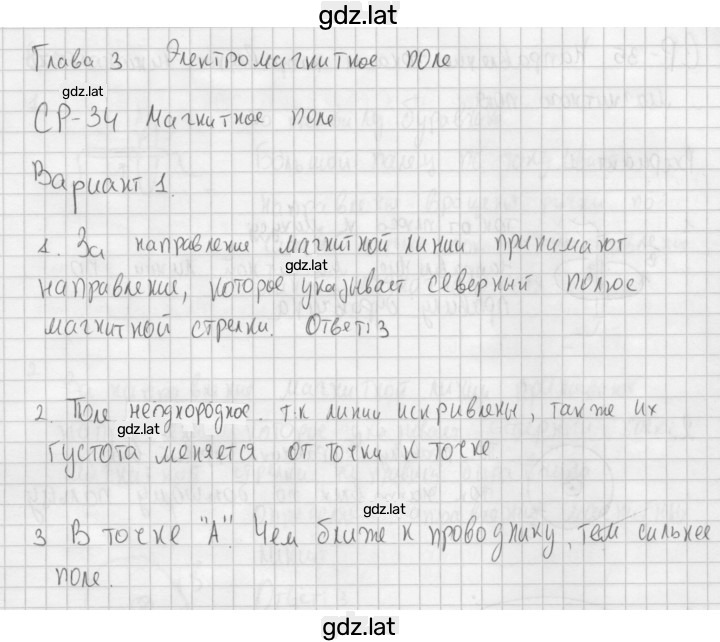 gdz.lat
Глава 3 Электромагнитное поле
gdz.lat
СР-34 Магнитное поле
Вариант 1.
1. За направление магнитной линии принимают
gdz.lat
направление, которое указывает северный полюс
магнитной стрелки. Ответ: 3
2. Поле неоднородное. т.к линии искривлены, также их
gdz.lat
густота меняется от точки к точке
gdz.lat
3 В точке "А". Чем ближе к проводнику, тем сильнее
поле.
gdz.lat